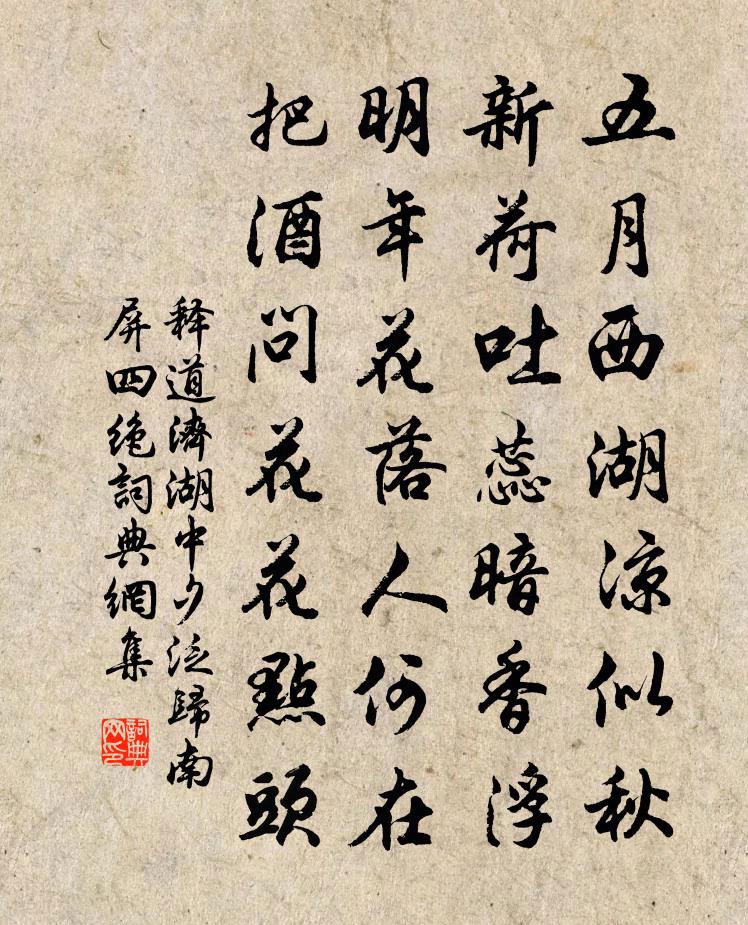 五月西湖凉似秋
新荷吐蕊暗香浮
明年花落人何在
把酒問花花點頭
释道濟湖中夕泛歸南
屏四絕詞典網集
詞典網印